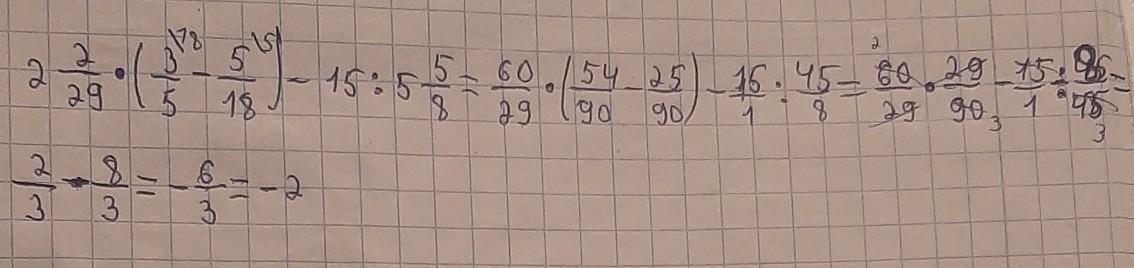 2 2/29 · (3/5 \18 - 5/18 \5) - 15 : 5 5/8 = 60/29 · (54/90 - 25/90) - 15/1 : 45/8 = 60/29 2 · 29/90 3 - 15/1 : 8/45 3 =
2/3 - 8/3 = - 6/3 = - 2